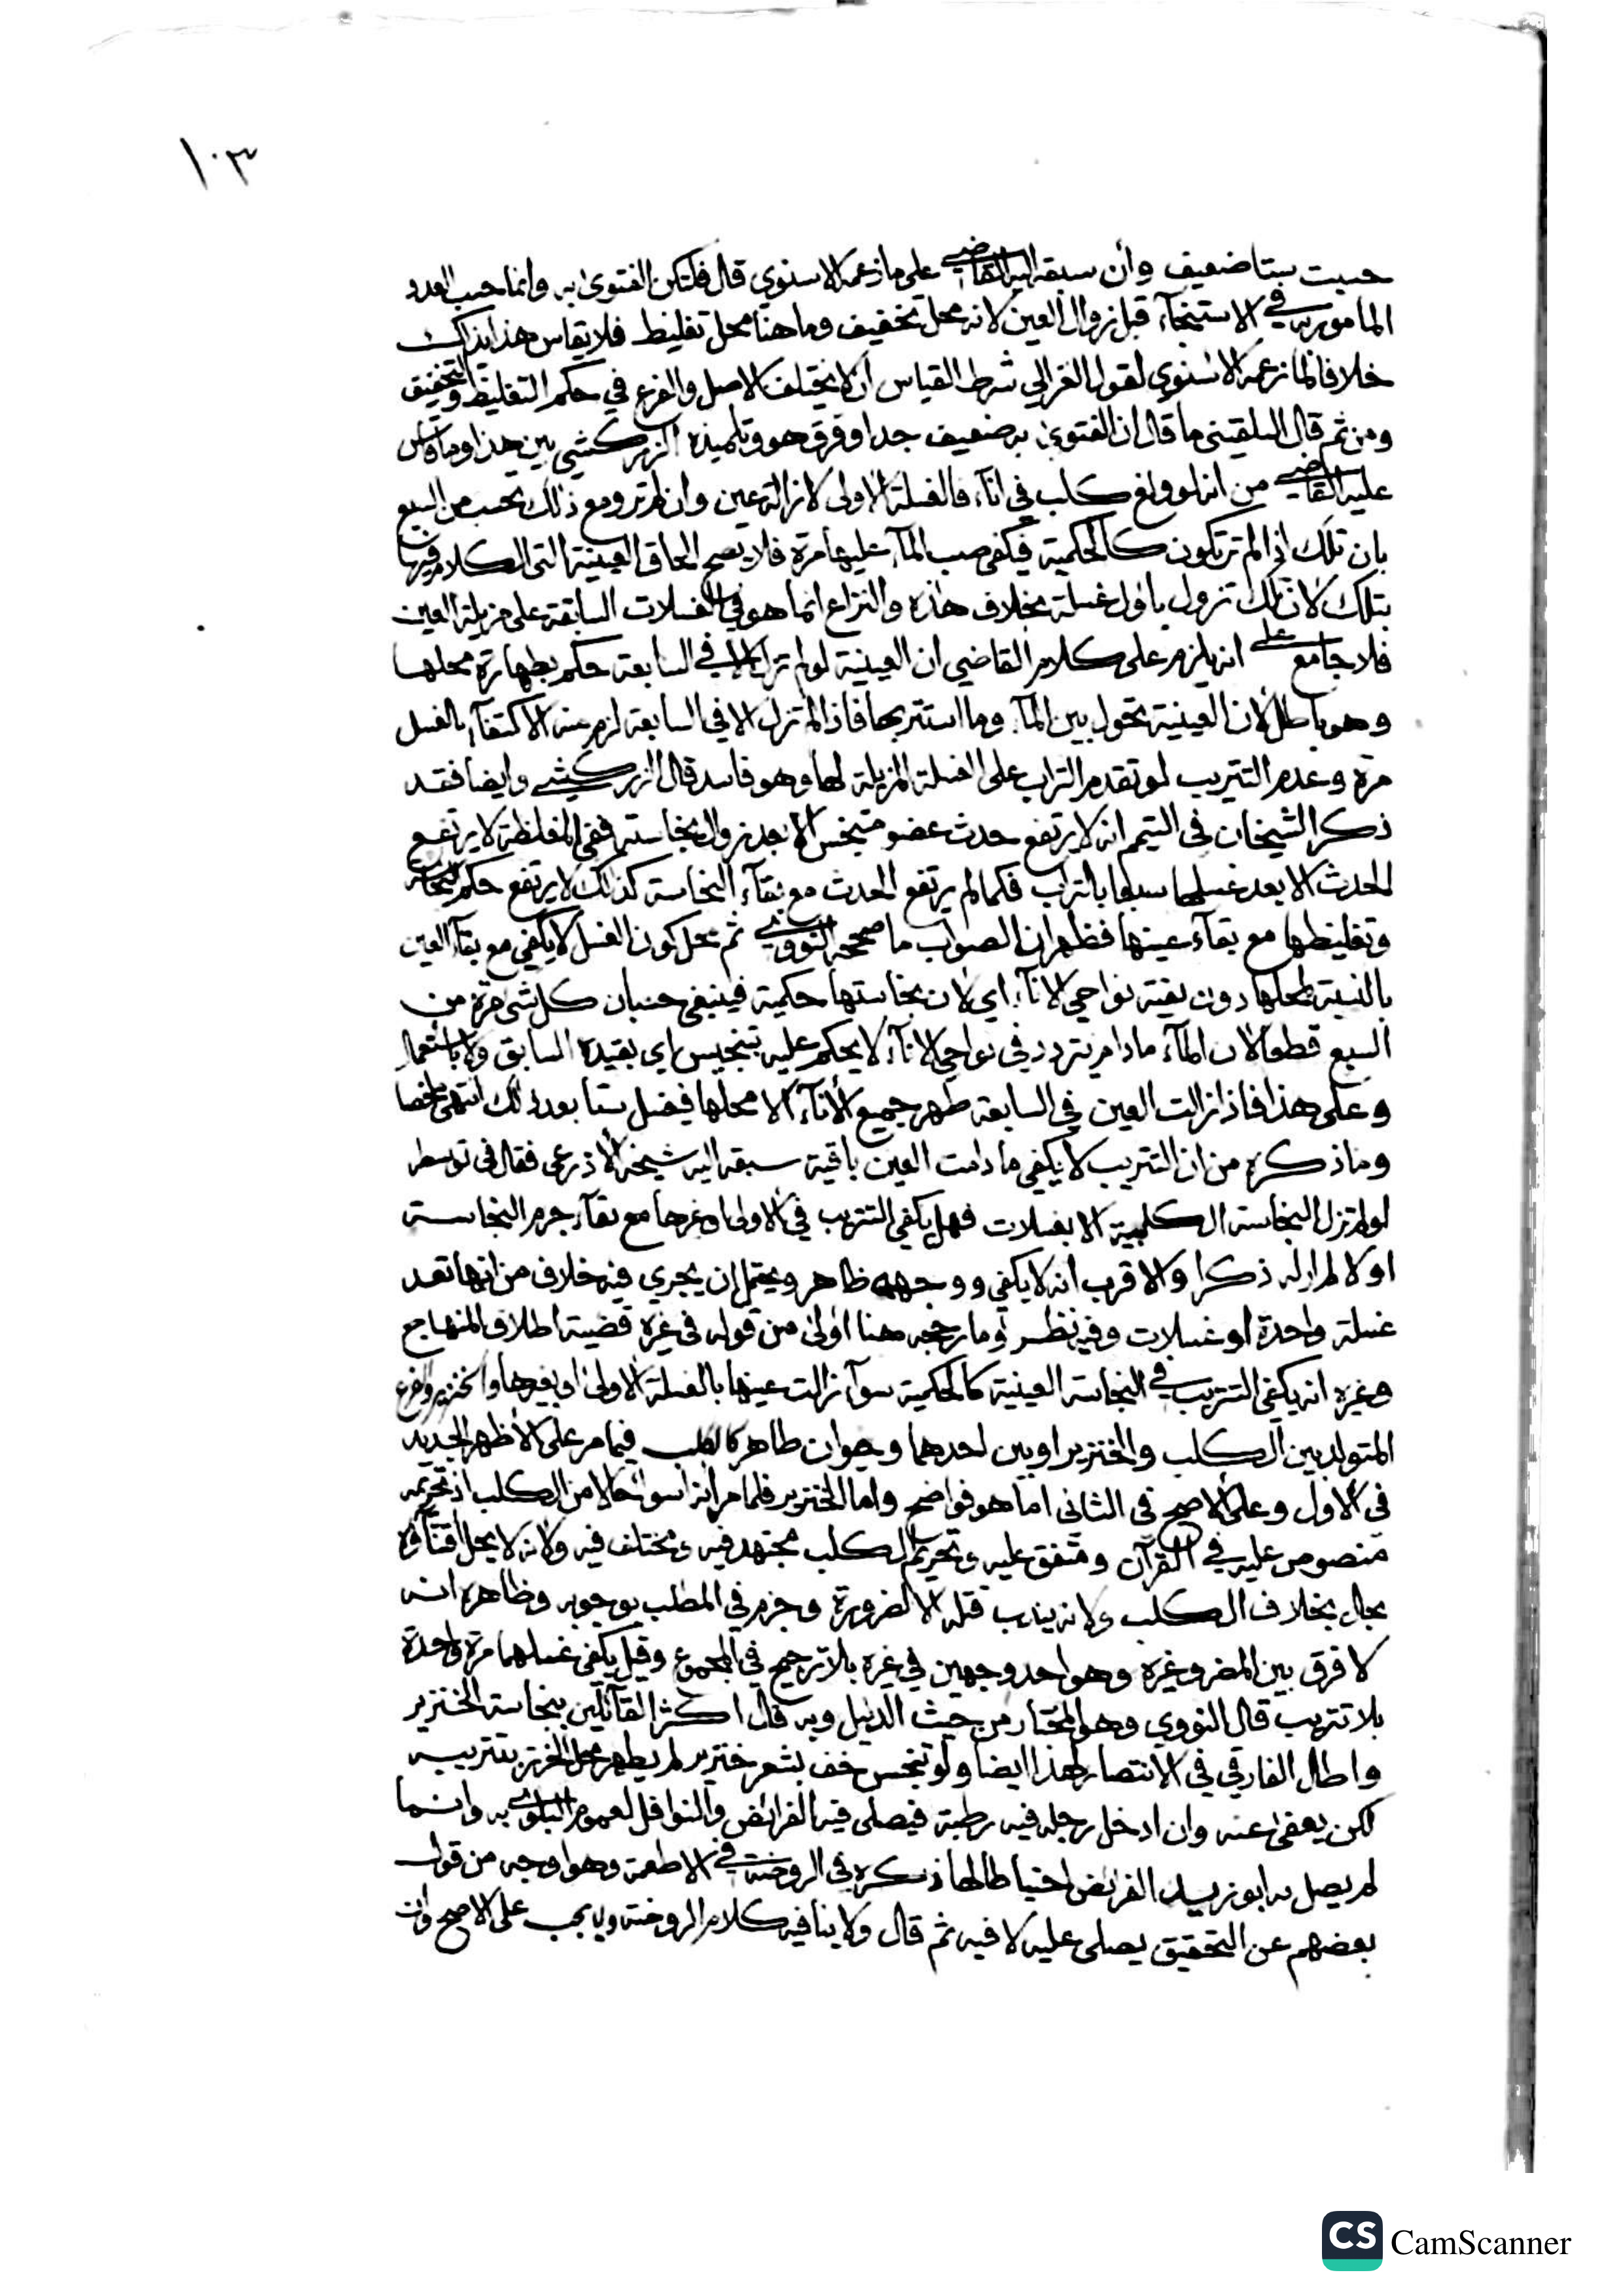 ١٠٣
حسبت ستا ضعيف وأن سبقه اليه القاضي على ما زعمه الاسنوي قال فلتكن الفتوى به وانما حسب العدد
المامور به في الاستنجآء قبل زوال العين لانه محل تخفيف وما هنا محل تغليظ فلا يقاس هذا بذاك
خلافا لما زعمه الاسنوي لقول الغزالي شرط القياس أن لا يختلف الاصل والفرع في حكم التغليظ والتخفيف
ومن ثم قال البلقيني ما قال ان الفتوى به ضعيف جدا وفرق هو وتلميذه الزركشي بين هذا وما قاس
عليه القاضي من انه لو ولغ كلب في انآء فالغسلة الاولى لازالة عين وان لم تر ومع ذلك تحسب من السبع
بان تلك اذا لم تر تكون كالحكمية فيكفي صب المآء عليها مرة فلا يصح الحاق العينية التي الكلام فيها
بتلك لان تلك تزول باول غسلة بخلاف هذه والنزاع انما هو في الغسلات السابقة على مزيلة العين
فلا جامع على انه يلزم على كلام القاضي ان العينية لو لم تزل الا في السابعة حكم بطهارة محلها
وهو باطل لان العينية تحول بين المآء وما استتر بها فاذا لم تزل الا في السابعة لزم منه الاكتفآء بالغسل
مرة وعدم التتريب لو تقدم التراب على الغسلة المزيلة لها وهو فاسد قال الزركشي وايضا فقد
ذكر الشيخان في التيمم انه لا يرتفع حدث عضو متنجس الا بعد زوال نجاسته ففي المغلظة لا يرتفع
الحدث الا بعد غسلها سبعا بالتراب فكما لم يرتفع الحدث مع بقآء النجاسة كذلك لا يرتفع حكم النجاسة
وتغليظها مع بقآء عينها فظهر ان الصواب ما صححه النووي ثم محل كون الغسل لا يكفي مع بقآء العين
بالنسبة لمحلها دون بقية نواحي الانآء اي لان نجاستها حكمية فينبغي حسبان كل شي مرة من
السبع قطعا لان المآء ما دام يتردد في نواحي الانآء لا يحكم عليه بتنجيس اي بقيده السابق ولا باستعمال
وعلى هذا فاذا زالت العين في السابعة طهر جميع الانآء الا محلها فيغسل ستا بعد ذلك انتهى ملخصا
وما ذكره من ان التتريب لا يكفي ما دامت العين باقية سبقه اليه شيخه الأذرعي فقال في توسطه
لو لم تزل النجاسة الكلبية الا بغسلات فهل يكفي التتريب في الاولى او غيرها مع بقآء جرم النجاسة
او لا لم ار له ذكرا والاقرب انه لا يكفي ووجهه ظاهر ويحتمل ان يجري فيه خلاف من انها تعد
غسلة واحدة او غسلات وفيه نظر وما رجحه هنا اولى من قوله في غيره قضية اطلاق المنهاج
وغيره انه يكفي التتريب في النجاسة العينية كالحكمية سوآء زالت عينها بالغسلة الاولى او بغيرها والخنزير والفرع
المتولد بين الكلب والخنزير او بين احدهما وحيوان طاهر كالكلب فيما مر على الأظهر الجديد
في الاول وعلى الاصح في الثاني اما هو فواضح واما الخنزير فلما مر انه اسوأ حالا من الكلب اذ تحريمه
منصوص عليه في القرآن ومتفق عليه وتحريم الكلب مجتهد فيه ومختلف فيه ولانه لا يحل اقتنآؤه
بحال بخلاف الكلب ولانه يندب قتله الا لضرورة وجزم في المطلب بوجوبه وظاهره انه
لا فرق بين المضر وغيره وهو احد وجهين في غيره بلا ترجيح في المجموع وقيل يكفي غسلهما مرة واحدة
بلا تتريب قال النووي وهو المختار من حيث الدليل وبه قال اكثر القآئلين بنجاسة الخنزير
واطال الفارقي في الانتصار لهذا ايضا ولو تنجس خف بشعر خنزير لم يطهر محل الخرز بتتريبه
لكن يعفى عنه وان ادخل رجله فيه رطبة فيصلى فيه الفرائض والنوافل لعموم البلوى به وانما
لم يصل به ابو زيد الفرائض احتياطا لها ذكره في الروضة في الاطعمة وهو اوجه من قول
بعضهم عن التحقيق يصلى عليه لا فيه ثم قال ولا ينافيه كلام الروضة ويجب على الاصح وان
CS CamScanner